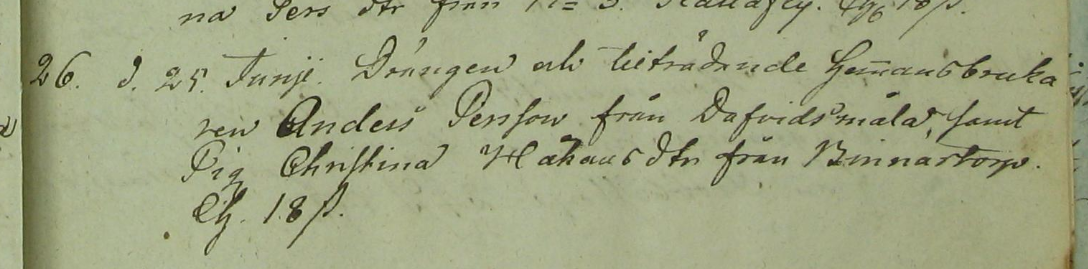 na Pers dtr från N= 3.
26. d. 25. Junji. Drängen och tilträdande Hemansbruka
ren Anders Persson från Dafvidsmåla, samt
Pig Christina Håkansdtr från Binnartorp.
18 ß.